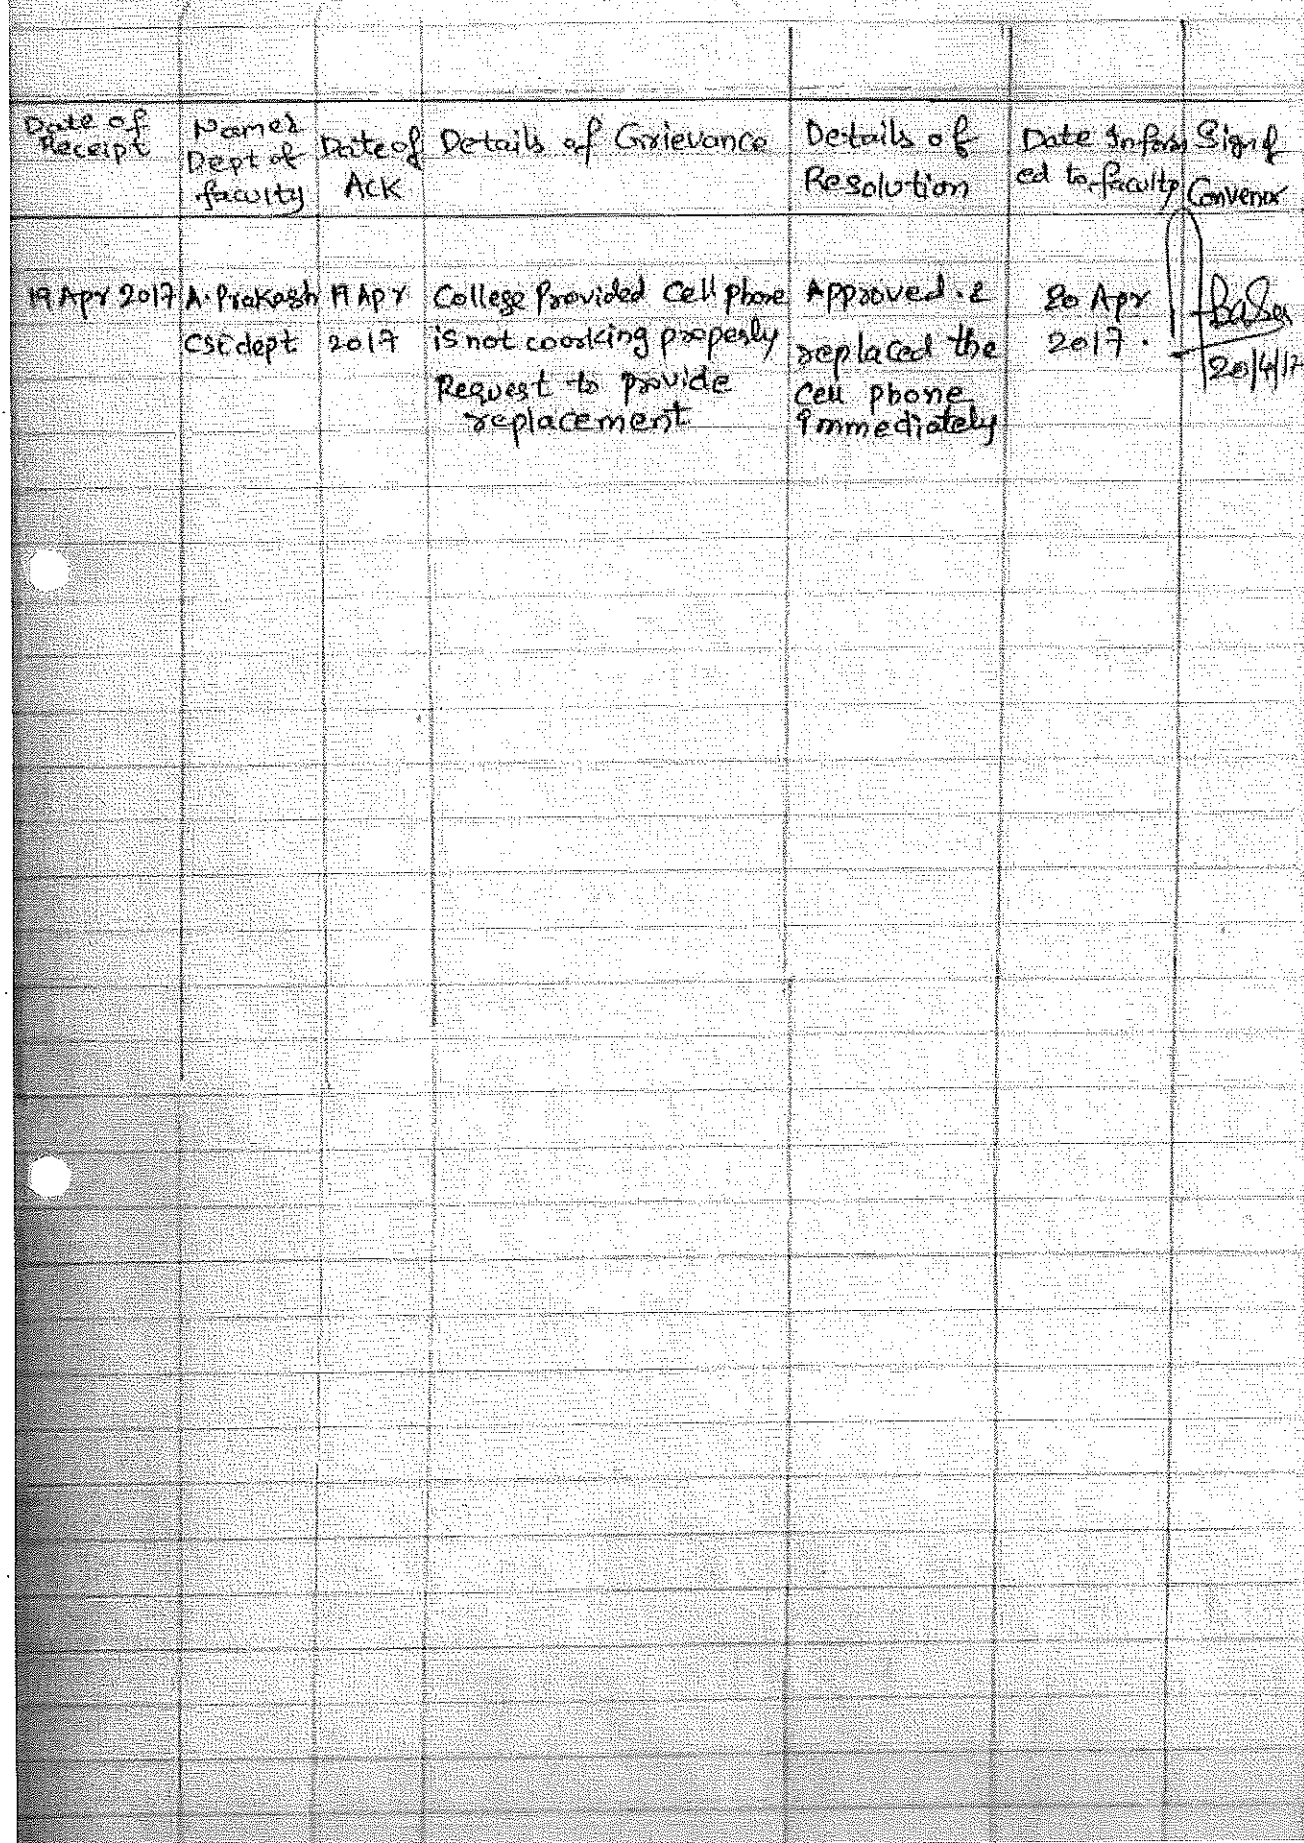 Date of
Receipt
Name &
Dept of
faculty
Date of
Ack
Details of Grievance
Details of
Resolution
Date Inform
ed to faculty
Sign of
Convenor
19 Apr 2017
A. Prakash
CSE dept
19 Apr
2017
College Provided Cell phone
is not working properly
Request to provide
replacement
Approved &
replaced the
Cell phone
immediately
20 Apr
2017.
20/4/17